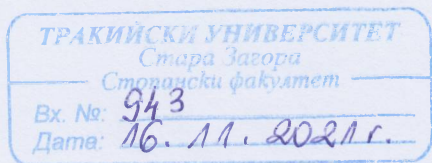 ТРАКИЙСКИ УНИВЕРСИТЕТ
Стара Загора
Стопански факултет
Вх. №: 943
Дата: 16. 11. 2021 г.